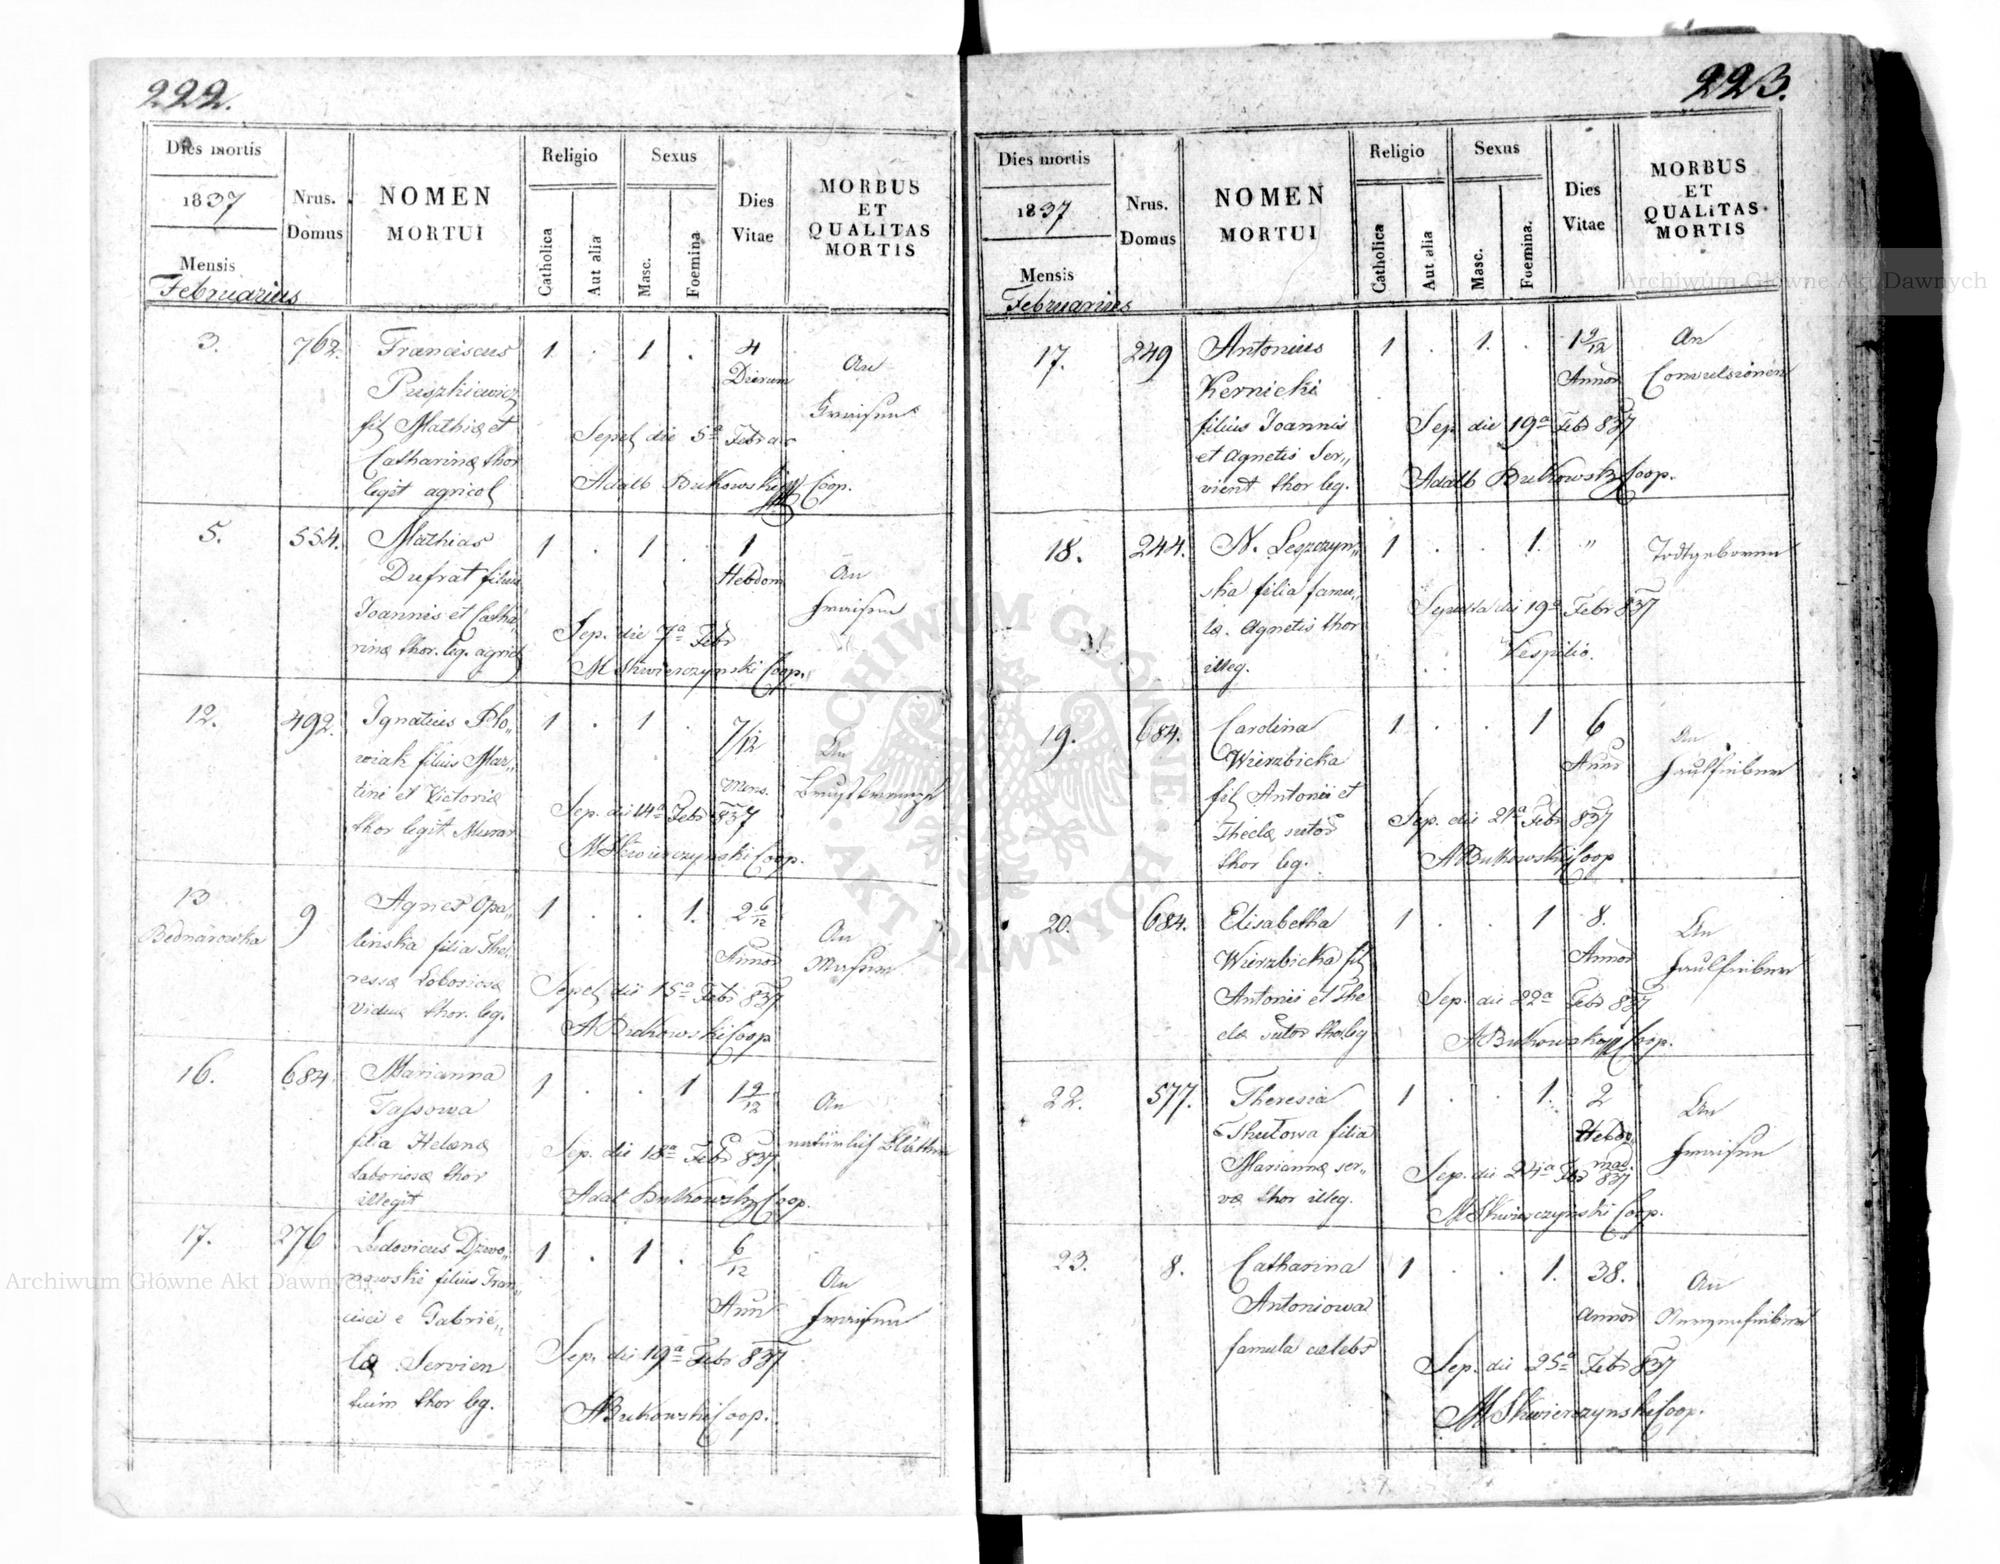 222.
Dies mortis
1837
Mensis
Februarius
Nrus.
Domus
NOMEN
MORTUI
Religio
Catholica
Aut alia
Sexus
Masc.
Foemina
Dies
Vitae
MORBUS
ET
QUALITAS
MORTIS
3. 762. Franciscus 1 . 1 . 4
Puszkiewicz Dierum An
fil Mathiæ et Fraisen
Catharinæ thor Sepel die 5ª Febr a c
legit agricol Adalb Butkowski Coop.
5. 554. Mathias 1 . 1 . 1
Dufrat filius Hebdom An
Joannis et Catha„ Fraisen
rinæ thor. leg. agricol Sep. die 7ª Febr
M Skwierczynski Coop.
12. 492. Ignatius Plo„ 1 . 1 . 7/12
wiak filius Mar„ Mens. An
tini et Victoriæ Sep. die 14ª Febr 837
thor legit. Murar M Skwierczynski Coop.
13 9 Agnes Opa„ 1 . . 1. 2 6/12
Bednarowka linska filia The„ Annor An
resiæ Laboriosæ Sepel die 15ª Febr 837
viduæ thor. leg. A Butkowski Coop
16. 684. Marianna 1 . . 1 1 9/12
Tassowa An
filia Helenæ Sep. die 18ª Febr 837 natürlich Blattern
Laboriosæ thor Adal Butkowski Coop.
illegit
17. 276 Ludovicus Dzwo„ 1 . 1 . 6/12
nowski filius Fran„ Ann An
cisci e Gabrie„ Fraisen
læ Servien Sep. die 19ª Febr 837
tium thor leg. A Butkowski Coop.
223.
Dies mortis
1837
Mensis
Februarius
Nrus.
Domus
NOMEN
MORTUI
Religio
Catholica
Aut alia
Sexus
Masc.
Foemina.
Dies
Vitae
MORBUS
ET
QUALITAS
MORTIS
17. 249 Antonius 1 . 1. . 1 9/12 An
Kernicki Annor Convulsionen
filius Joannis Sep die 19ª Febr 837
et Agnetis Ser„ Adalb Butkowski Coop.
vient thor leg.
18. 244. N. Leszczyn„ 1 . . 1. " Todtgeboren
ska filia famu„ Sepulta die 19ª Febr 837
læ Agnetis thor Vespilio.
illeg.
19. 684. Carolina 1 . . 1 6 An
Wierzbicka Ann Faulfieber
fil Antonii et Sep. die 21ª Febr 837
Theclæ sutor A Butkowski Coop
thor leg.
20. 684. Elisabetha 1 . . 1 8. An
Wierzbicka fil Annor Faulfieber
Antonii et The Sep. die 22ª Febr 837
clæ sutor thor leg A Butkowski Coop.
22. 577. Theresia 1 . . 1. 2 An
Thutowa filia Hebdo Fraisen
Mariannæ ser„ mad.
væ thor illeg. Sep. die 24ª Febr 837
M Skwierczynski Coop.
23. 8. Catharina 1 . . 1. 38. An
Antoniowa Annor Nervenfieber
famula cælebs Sep. die 25ª Febr 837
M Skwierczynski Coop.
Archiwum Główne Akt Dawnych
ARCHIWUM GŁÓWNE · AKT DAWNYCH ·
Archiwum Główne Akt Dawnych